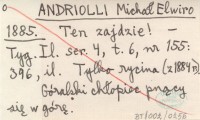 ANDRIOLLI Michał Elwiro
1885. Ten zajdzie! —
Tyg. Il. ser. 4, t. 6, nr 155:
396, il. Tylko rycina (z 1884 r.)
Góralski chłopiec pnący
się w górę.
BT/002/0256